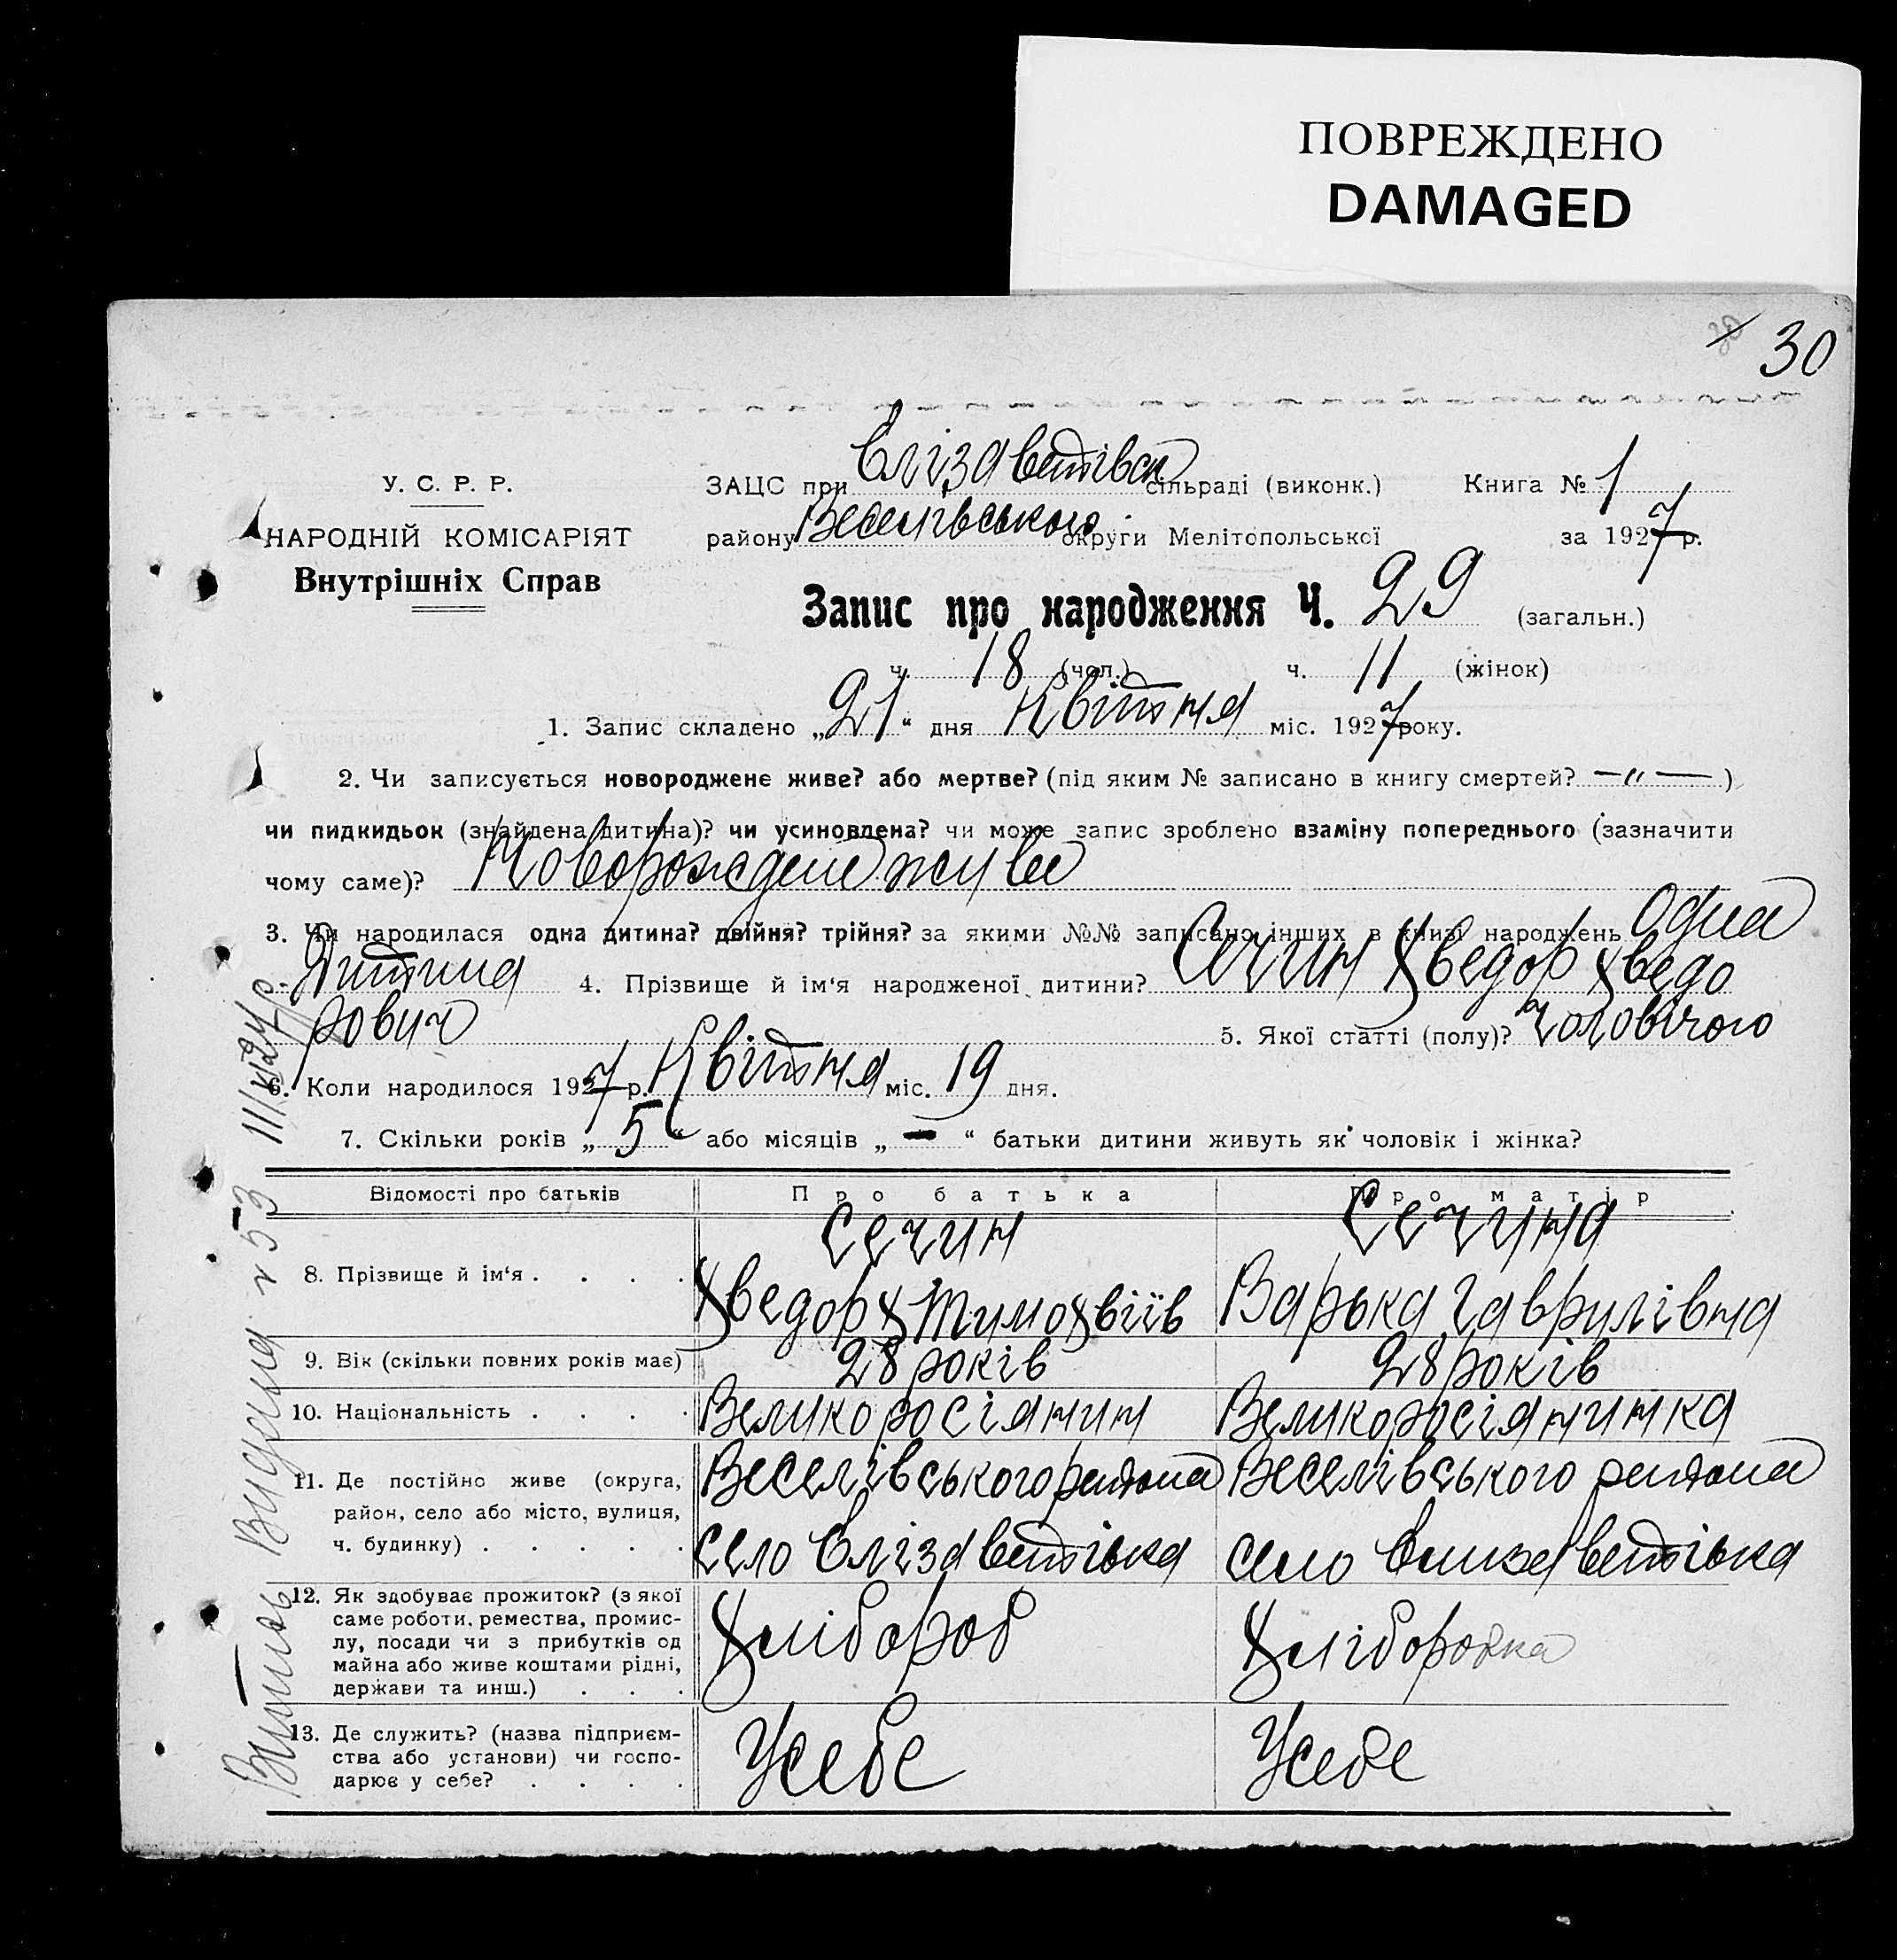 ПОВРЕЖДЕНО
DAMAGED
30
У. С. Р. Р.
НАРОДНІЙ КОМІСАРІЯТ
Внутрішніх Справ
ЗАЦС при Єлізаветівск сільраді (виконк.) Книга № 1
району Веселівського округи Мелітопольської за 1927 р.
Запис про народження Ч. 29 (загальн.)
ч. 18 (чол.) ч. 11 (жінок)
1. Запис складено „21“ дня Квітня міс. 1927 року.
2. Чи записується новороджене живе? або мертве? (під яким № записано в книгу смертей? —„—)
чи пидкидьок (знайдена дитина)? чи усиновлена? чи може запис зроблено взаміну попереднього (зазначити
чому саме)? Новорождене живе
3. Чи народилася одна дитина? двійня? трійня? за якими №№ записано інших в книзі народжень Одна
Дитина 4. Прізвище й ім‘я народженої дитини? Сечин Хведор Хведо
рович 5. Якої статті (полу)? Чоловічого
6. Коли народилося 1927 р. Квітня міс. 19 дня.
7. Скільки років „5“ або місяців „—“ батьки дитини живуть як чоловік і жінка?
Відомості про батьків Про батька Про матір
8. Прізвище й ім‘я . . . . Сечин Хведор Тимохвіїв Сечина Варька Гаврилівна
9. Вік (скільки повних років має) 28 років 28 років
10. Національність . . . . Великоросіянин Великоросіянинка
11. Де постійно живе (округа, район, село або місто, вулиця, ч. будинку) . . . . . Веселівського района село Єлізаветівка Веселівського района село Єлизаветівка
12. Як здобуває прожиток? (з якої саме роботи, ремества, промис-лу, посади чи з прибутків од майна або живе коштами рідні, держави та инш.) . . . Хлібороб Хліборобка
13. Де служить? (назва підприєм-ства або установи) чи госпо-дарює у себе? . . . . Усебе Усебе
Витяг Видана № 53